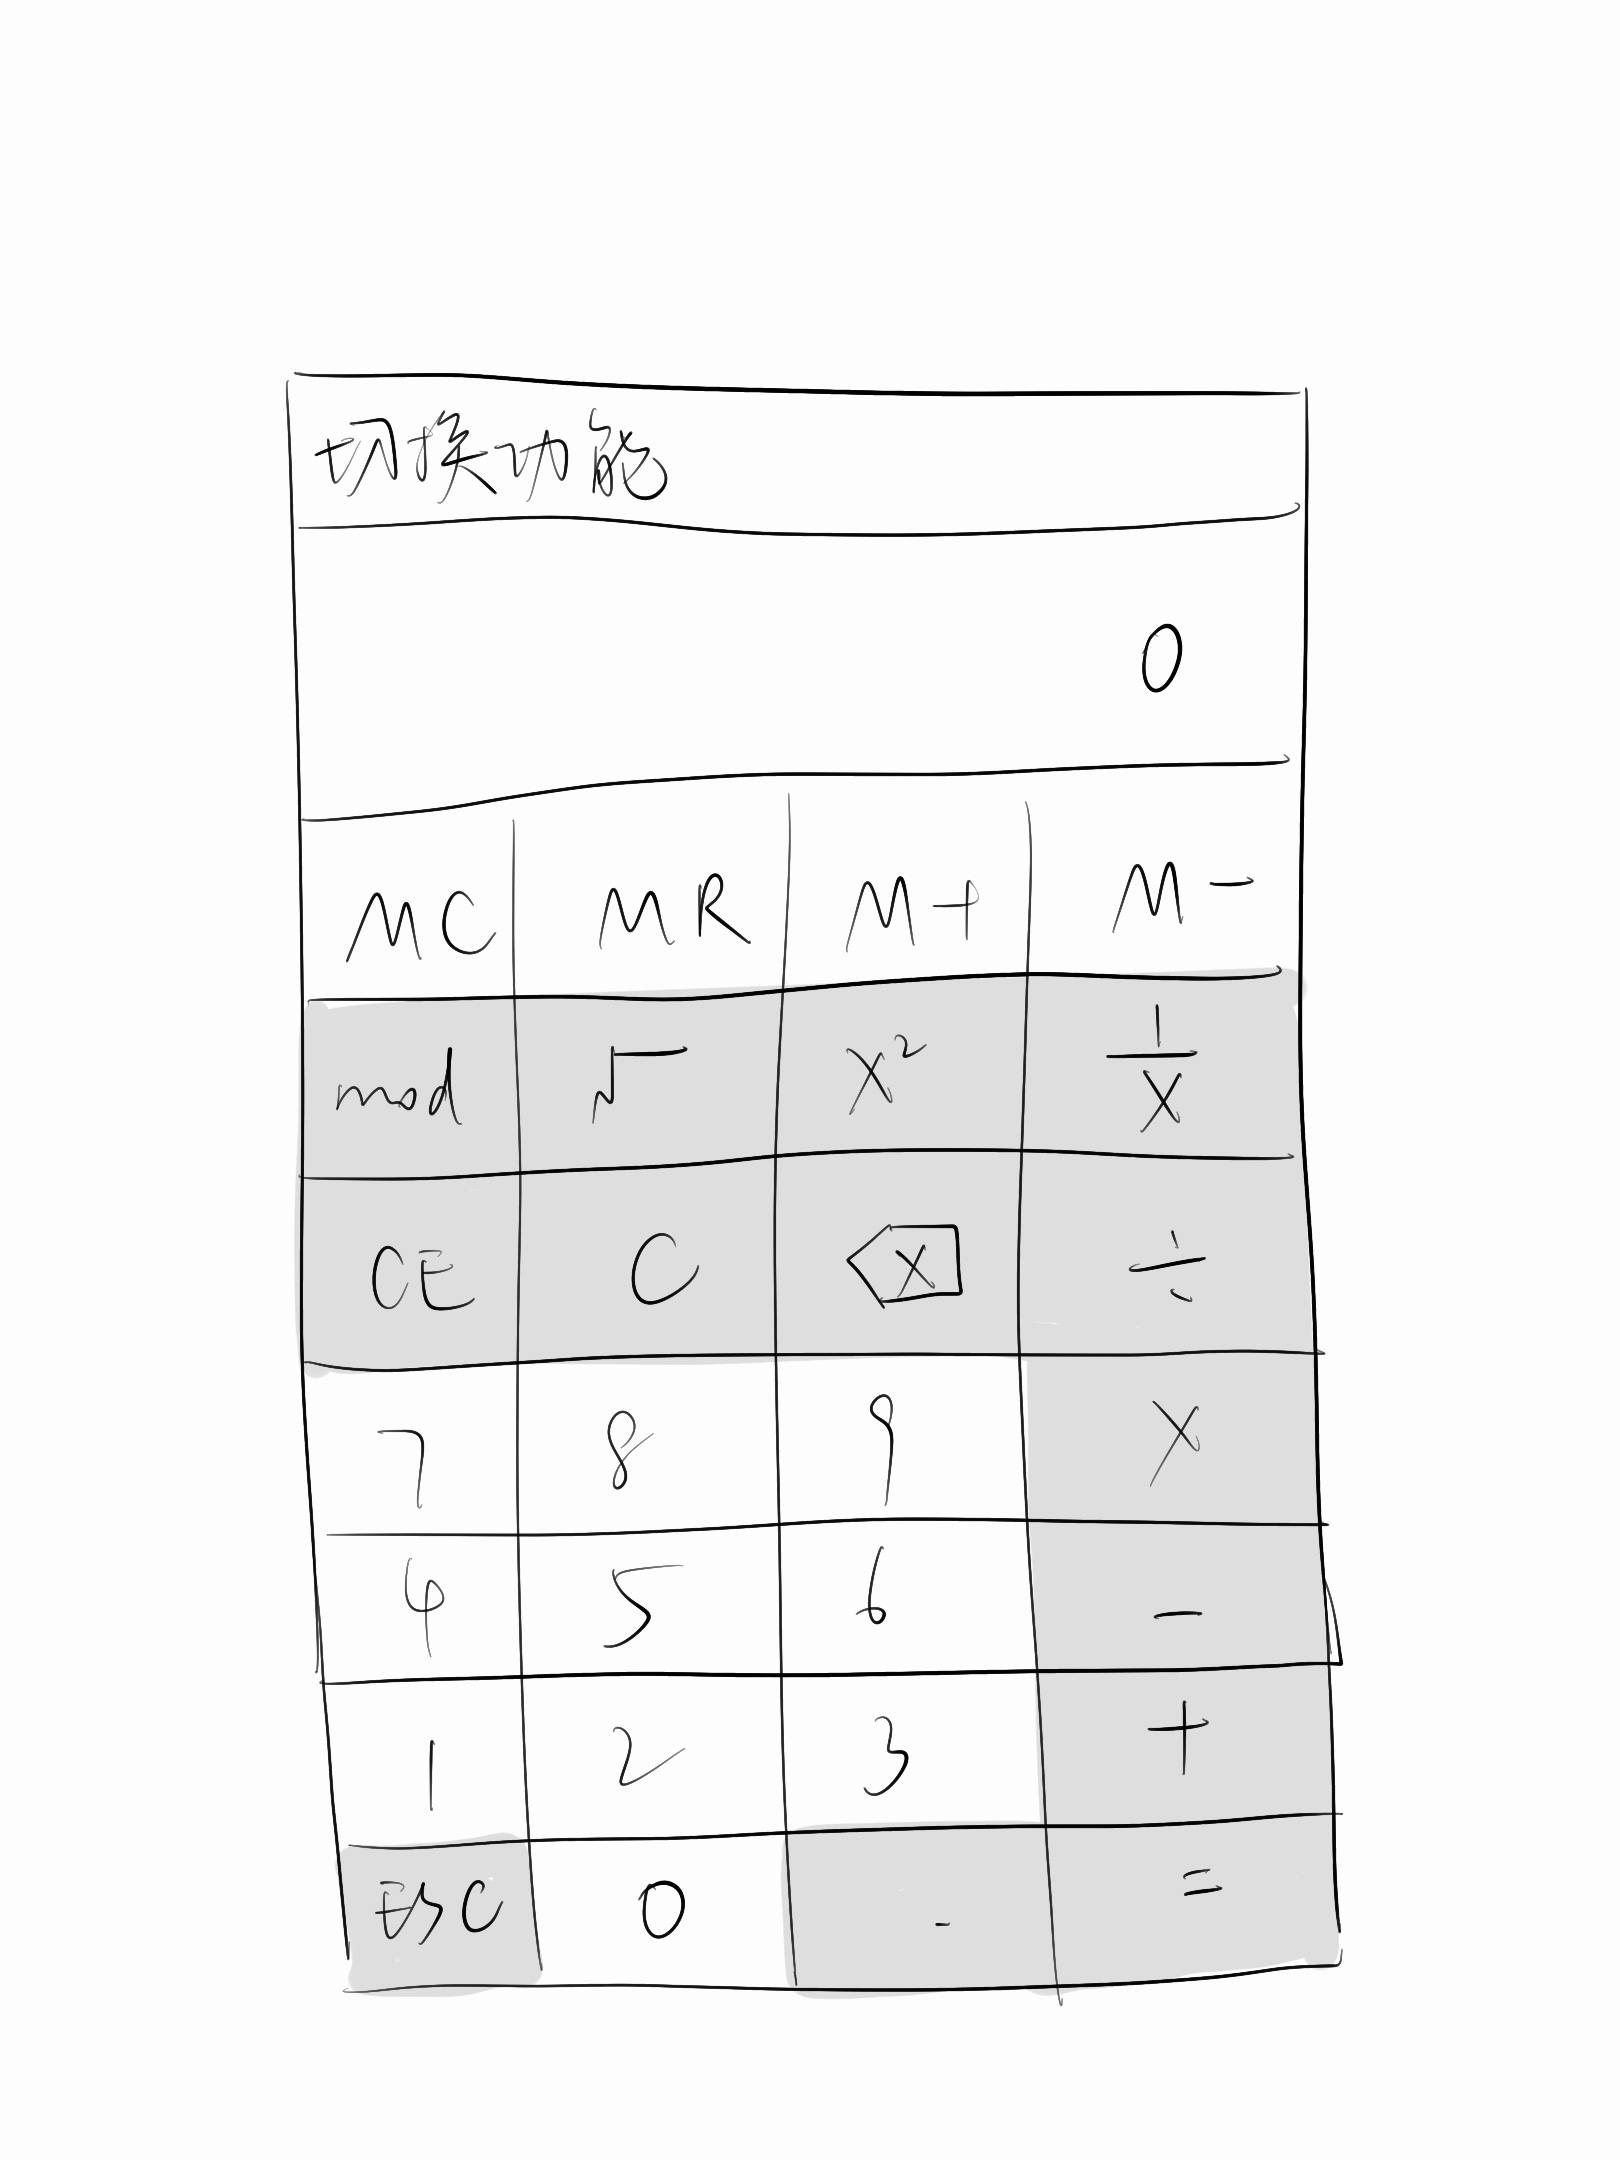 切换功能
0
MC MR M+ M-
mod √ x² 1/x
CE C ⌫ ÷
7 8 9 ×
4 5 6 -
1 2 3 +
ESC 0 . =